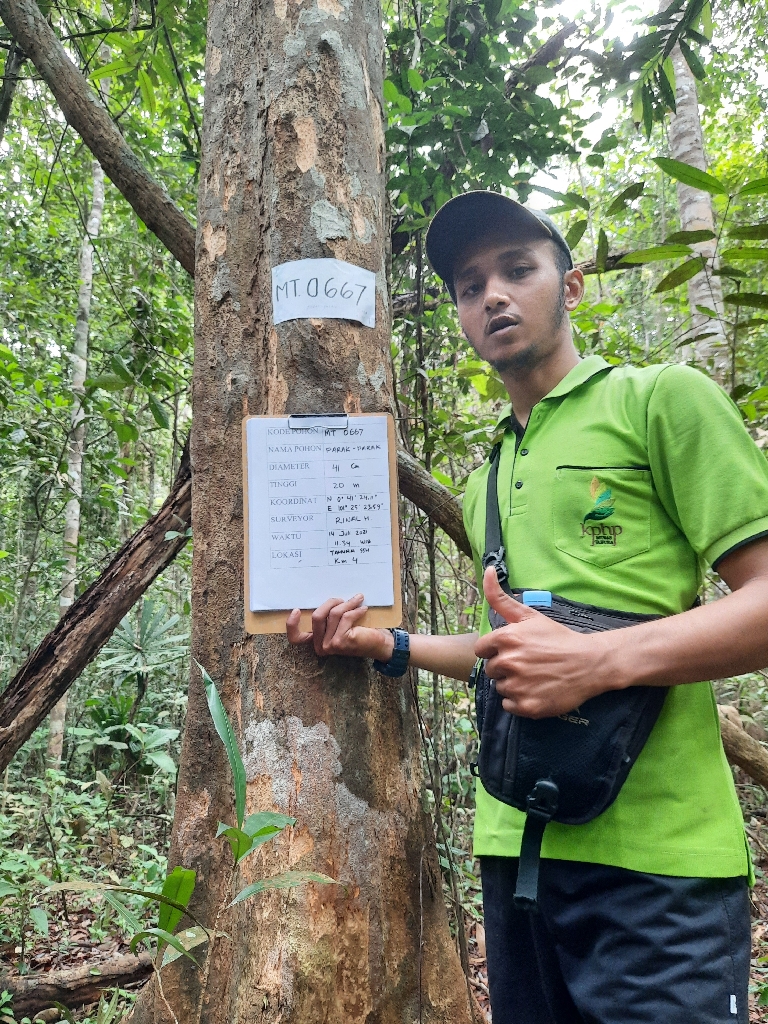 MT. 0667
KODE POHON MT 0667
NAMA POHON PARAK-PARAK
DIAMETER 41 Cm
TINGGI 20 m
KOORDINAT N 0° 41' 24.1"
E 101° 25' 23.59"
SURVEYOR RINAL H
WAKTU 14 Jul 2021
11.34 WIB
LOKASI TAHURA SSH
Km 4
kphp